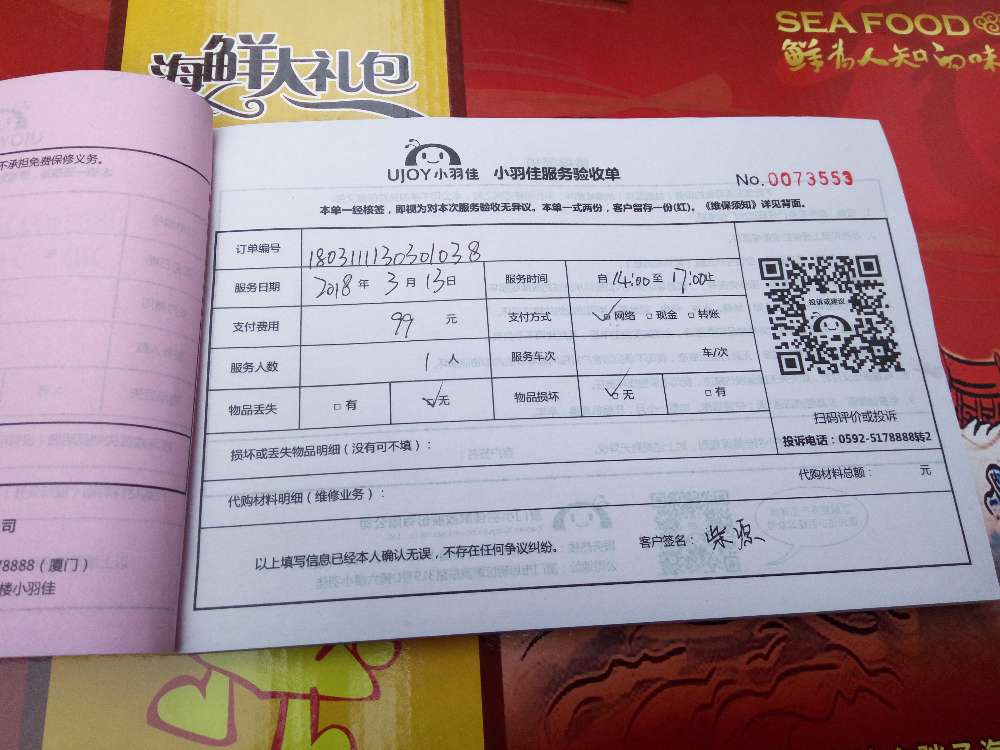 SEA FOOD
鲜为人知的味
海鲜大礼包
不承担免费保修义务。
司
78888（厦门）
楼小羽佳
UJOY小羽佳 小羽佳服务验收单
No.0073553
本单一经核签，即视为对本次服务验收无异议。本单一式两份，客户留存一份(红)。《维保须知》详见背面。
订单编号 180311130301038
服务日期 2018 年 3 月 13 日 服务时间 自 14:00 至 17:00 止
支付费用 99 元 支付方式 ☑ 网络 □ 现金 □ 转账
服务人数 1 人 服务车次 车/次
物品丢失 □ 有 ☑ 无 物品损坏 ☑ 无 □ 有
投诉或建议
扫码评价或投诉
投诉电话：0592-5178888转2
损坏或丢失物品明细（没有可不填）：
代购材料明细（维修业务）： 代购材料总额： 元
以上填写信息已经本人确认无误，不存在任何争议纠纷。 客户签名：柴源